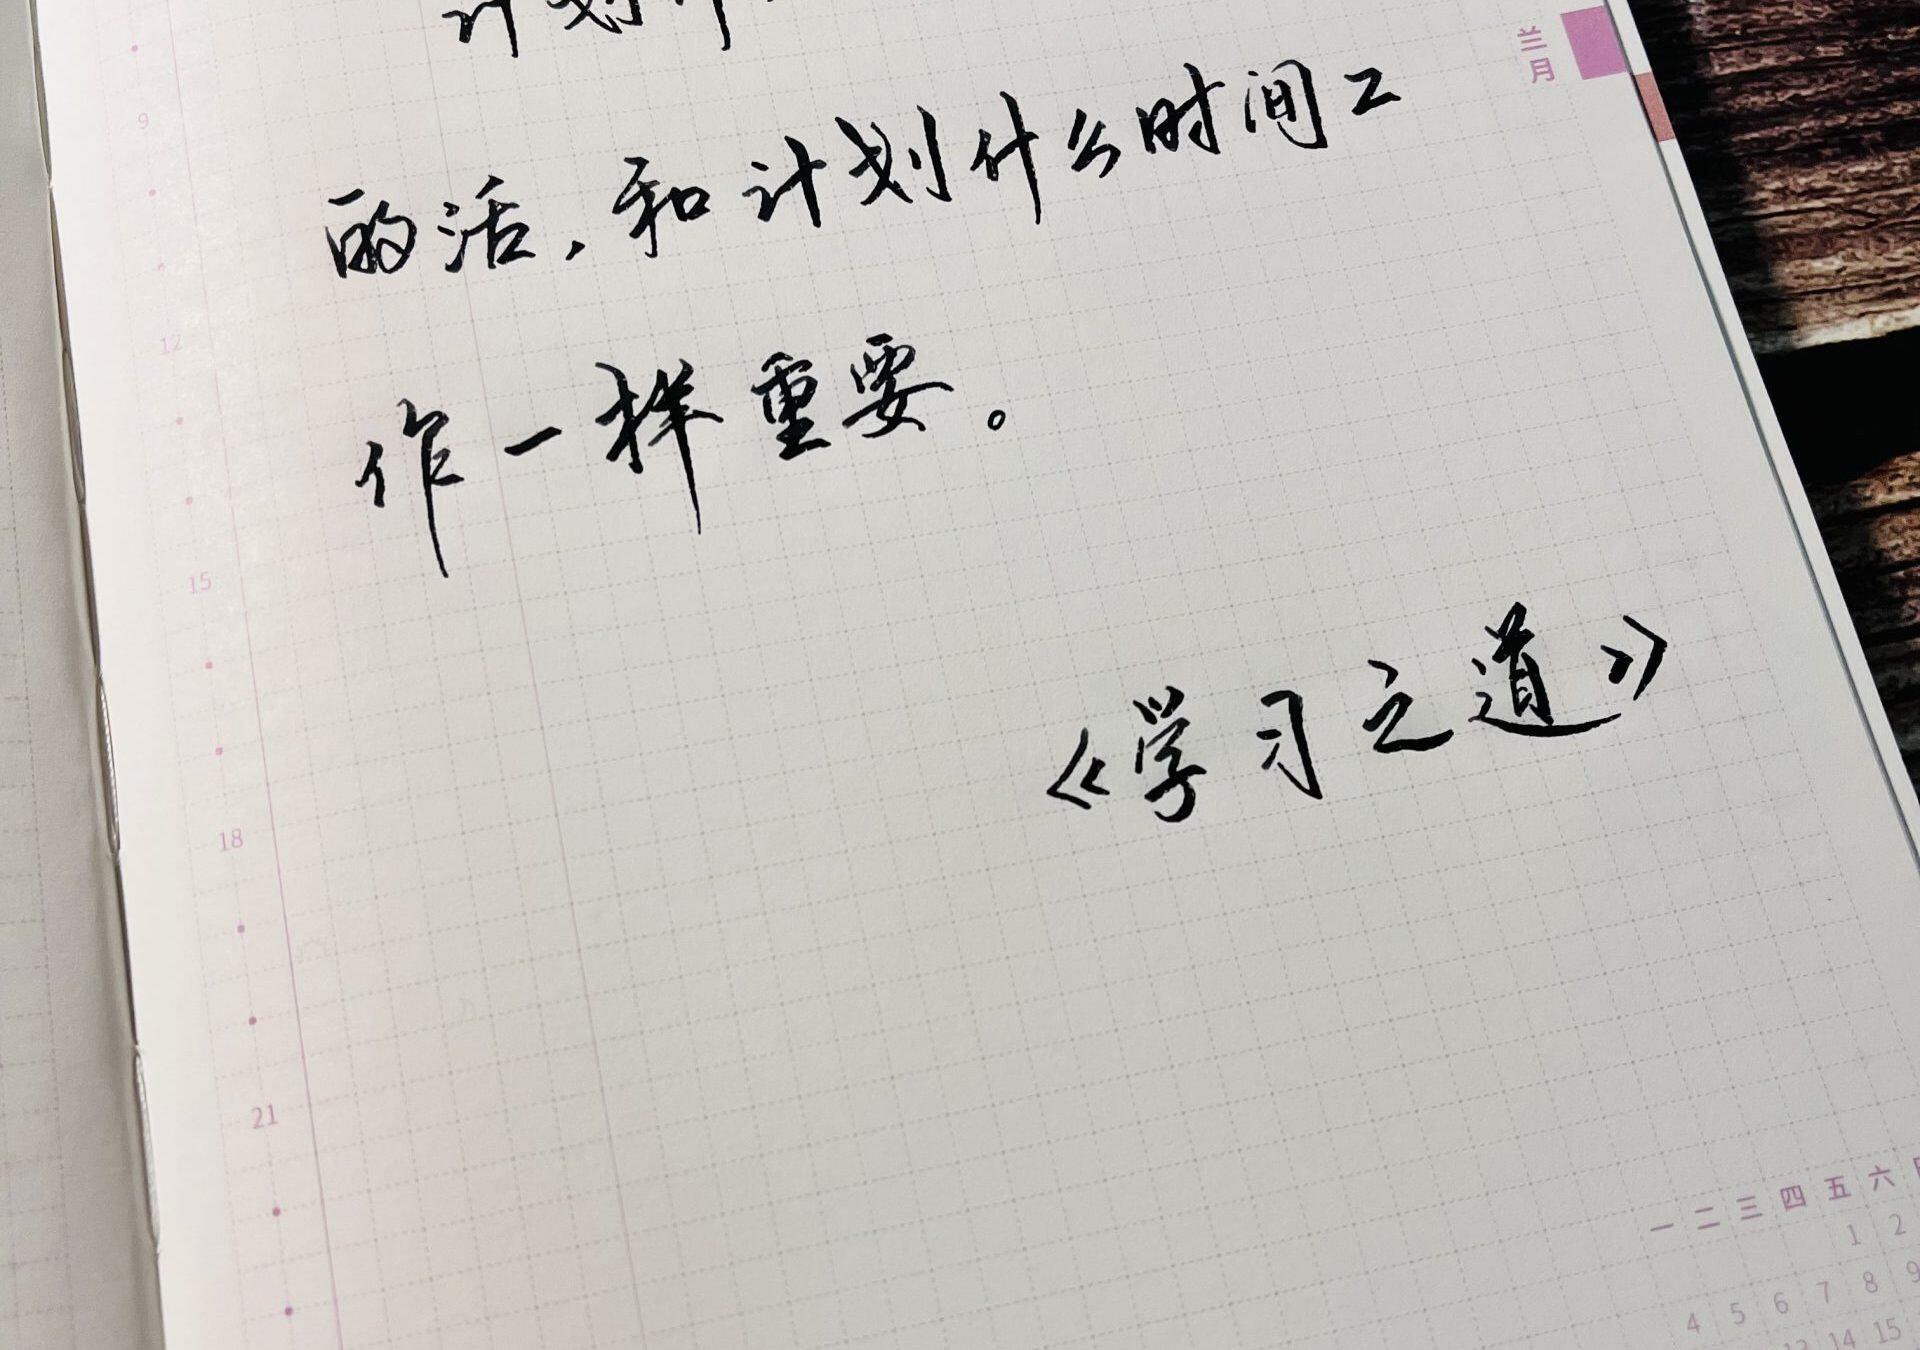 计划什
兰月
的活,和计划什么时间工
作一样重要。
《学习之道》
9
12
15
18
21
一 二 三 四 五 六
1 2
4 5 6 7 8 9
13 14 15